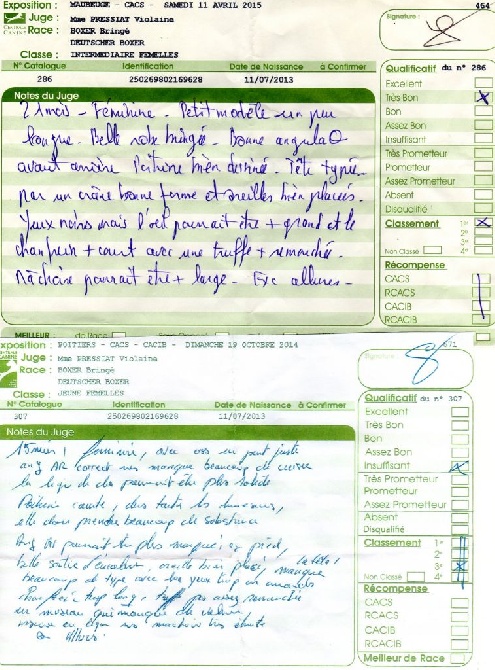 Exposition : MAUBEUGE - CACS - SAMEDI 11 AVRIL 2015
464
Juge : Mme PRESSIAT Violaine
Signature :
Race : BOXER Bringé
DEUTSCHER BOXER
Classe : INTERMEDIAIRE FEMELLES
N° Catalogue Identification Date de Naissance à Confirmer
286 250269802169628 11/07/2013
Qualificatif du n° 286
Excellent
Très Bon
Bon
Assez Bon
Insuffisant
Très Prometteur
Prometteur
Assez Prometteur
Absent
Disqualifié
Classement 1°
2°
3°
Non Classé 4°
Récompense
CACS
RCACS
CACIB
RCACIB
Notes du Juge
21 mois - Féminine. Petit modèle un peu
longue. Belle robe bringée. Bonne angula°
avant arrière Poitrine bien dessinée. Tête typée
par un crâne bonne forme et oreilles bien placées.
Yeux noirs mais l'œil pourrait être + grand et le
chanfrein + court avec une truffe + remontée.
Mâchoire pourrait être + large - Exc allures -
MEILLEUR de Race
Exposition : POITIERS - CACS - CACIB - DIMANCHE 19 OCTOBRE 2014
671
Juge : Mme PRESSIAT Violaine
Signature
Race : BOXER Bringé
DEUTSCHER BOXER
Classe : JEUNE FEMELLES
N° Catalogue Identification Date de Naissance à Confirmer
307 250269802169628 11/07/2013
Qualificatif du n° 307
Excellent
Très Bon
Bon
Assez Bon
Insuffisant
Très Prometteur
Prometteur
Assez Prometteur
Absent
Disqualifié
Classement 1°
2°
3°
Non Classé 4°
Récompense
CACS
RCACS
CACIB
RCACIB
Meilleur de Race
Notes du Juge
15 mois, féminine, avec os un peu juste
ang AR correct mais manque beaucoup de cuisse
la ligne de dos pourrait être plus solide
Poitrine correcte, dans toutes les
elle doit prendre beaucoup de substance
pourrait être plus marqué,
belle oreille bien placée, la tête manque
beaucoup de type avec des yeux trop
trop long, truffe pas assez remontée
un museau qui manque de